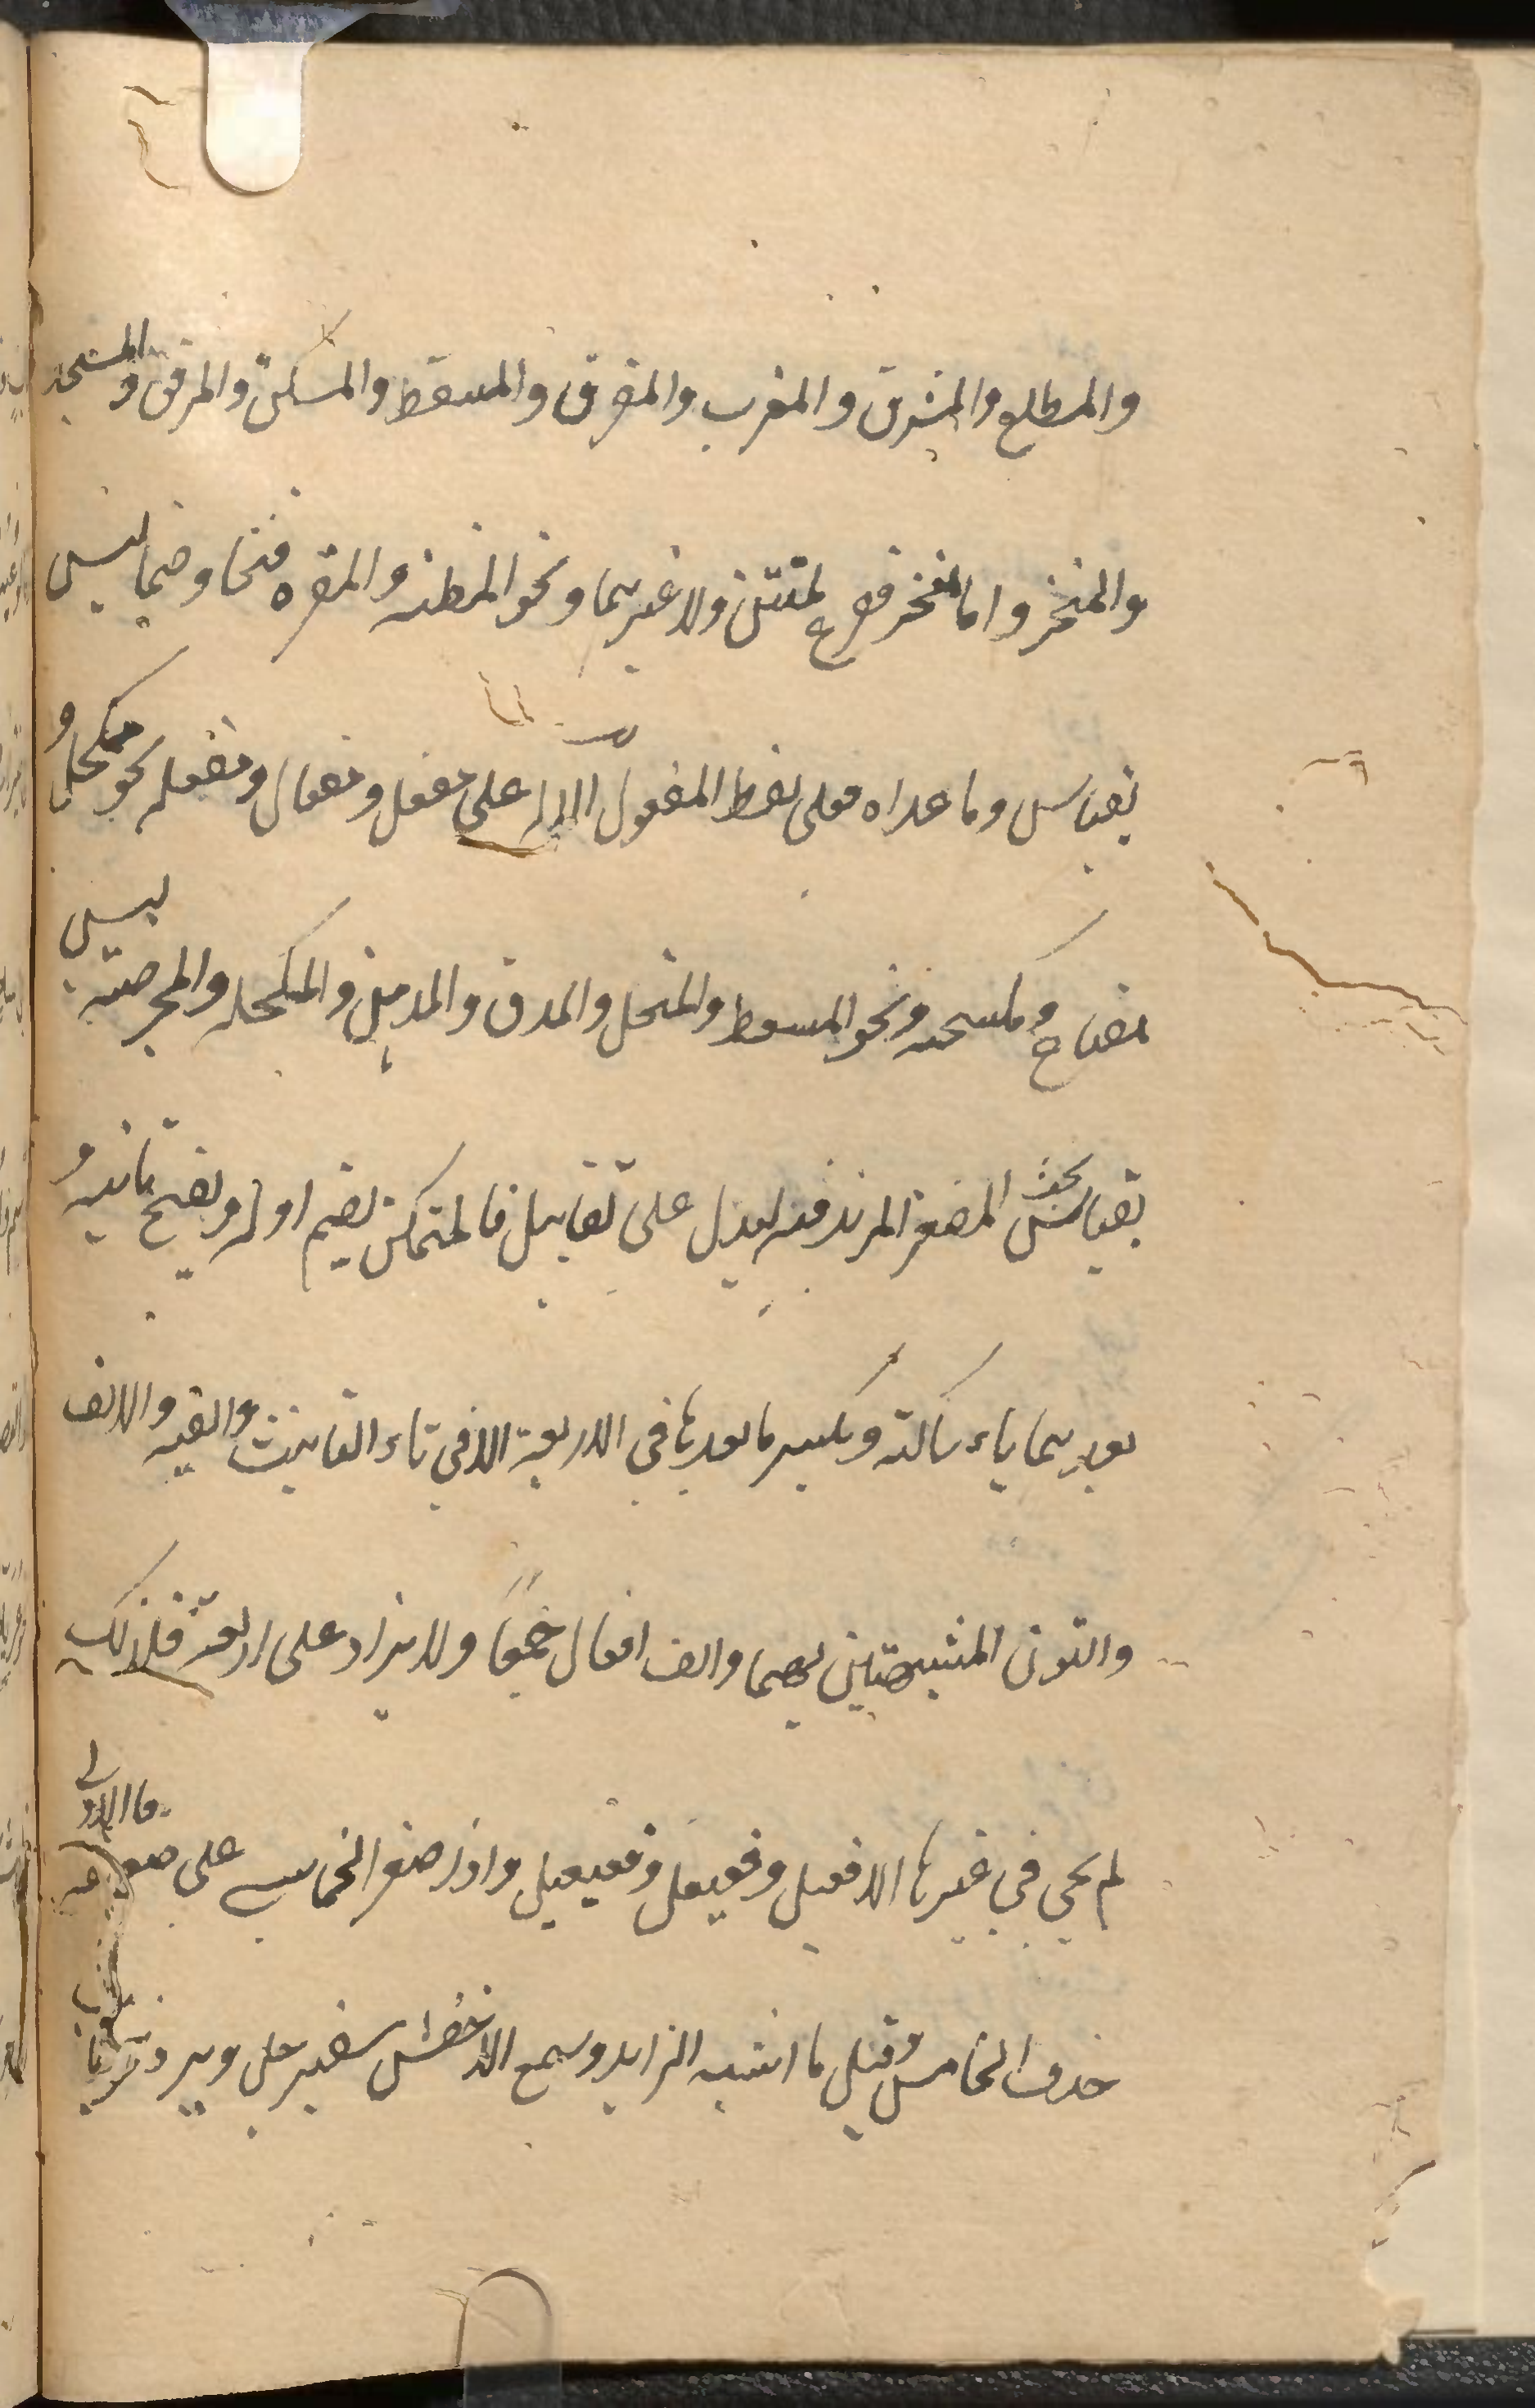 والمطلع والمشرق والمغرب والمفرق والمسقط والمسكن والمرفق والمسجد
والمنخر واما منخر ففرع كمنتن ولا غيرهما ونحو المظنه والمقبره فتحا وضما ليس
بقياس وما عداه فعلى لفظ المفعول الاله على مفعل ومفعال ومفعله نحو محلب و
مفتاح ومكسحه ونحو المسعط والمنخل والمدق والمدهن والمكحله والمحرضة ليس
بقياس بحث المصغر المزيد فيه ليدل على تقليل فالمتمكن يضم اوله ويفتح ثانيه و
بعدهما ياء ساكنة ويكسر ما بعدها في الاربعة الا في تاء التانيث والفيه والالف
والنون المشبهتين بهما والف افعال جمعا ولا يزاد على اربعة فلذلك
لم يجي في غيرها الا فعيل وفعيعل وفعيعيل واذا صغر الخماسي على ضعفه فالاولى
حذف الخامس وقيل ما اشبه الزايد وسمع الاخفش سفيرجل ويرد نحو باب